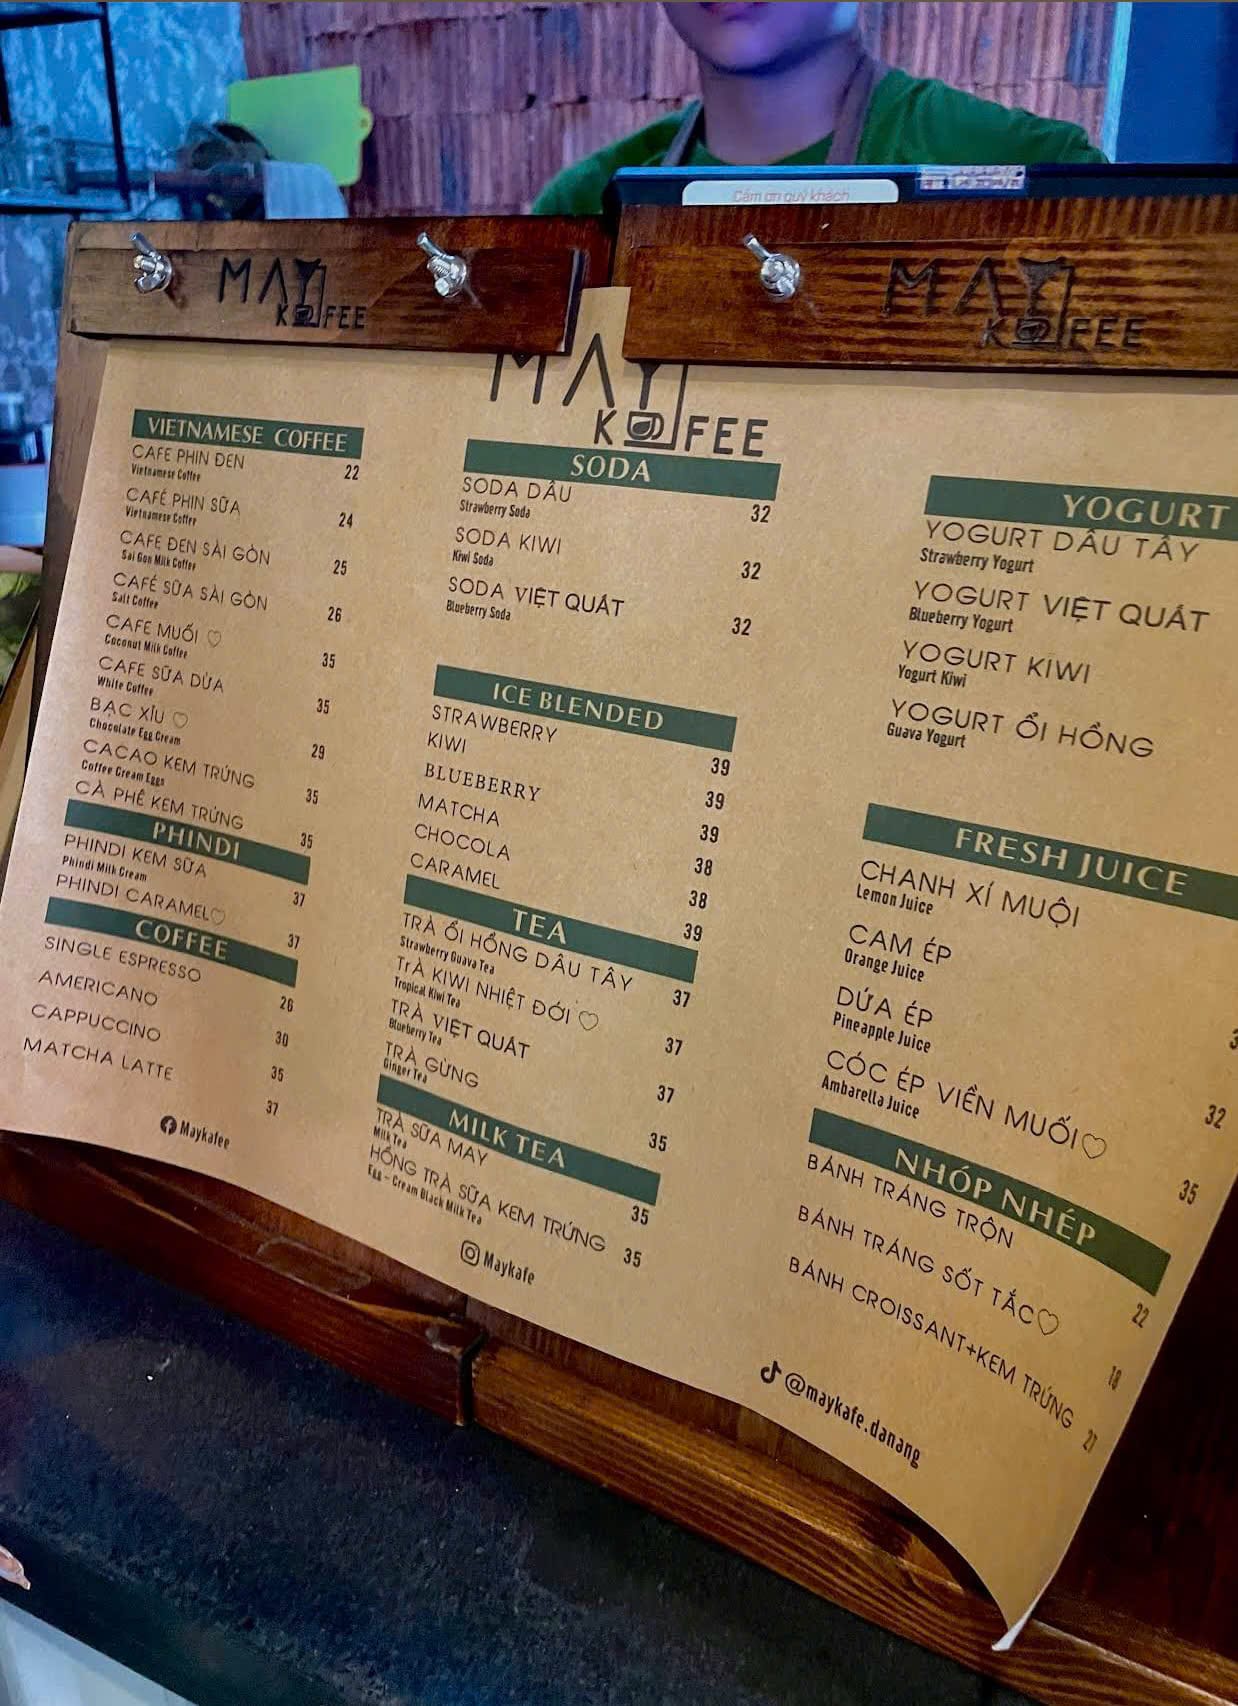 Cảm ơn quý khách
MAY
KOFFEE
MAY
KOFFEE
MAY
KOFFEE
VIETNAMESE COFFEE
CAFE PHIN ĐEN 22
Vietnamese Coffee
CAFÉ PHIN SỮA 24
Vietnamese Coffee
CAFE ĐEN SÀI GÒN 25
Sai Gon Milk Coffee
CAFÉ SỮA SÀI GÒN 26
Salt Coffee
CAFE MUỐI ♡ 35
Coconut Milk Coffee
CAFE SỮA DỪA 35
White Coffee
BẠC XỈU ♡ 29
Chocolate Egg Cream
CACAO KEM TRỨNG 35
Coffee Cream Eggs
CÀ PHÊ KEM TRỨNG 35
PHINDI
PHINDI KEM SỮA 37
Phindi Milk Cream
PHINDI CARAMEL♡ 37
COFFEE
SINGLE ESPRESSO 26
AMERICANO 30
CAPPUCCINO 35
MATCHA LATTE 37
Maykafee
SODA
SODA DÂU 32
Strawberry Soda
SODA KIWI 32
Kiwi Soda
SODA VIỆT QUẤT 32
Blueberry Soda
ICE BLENDED
STRAWBERRY 39
KIWI 39
BLUEBERRY 39
MATCHA 38
CHOCOLA 38
CARAMEL 39
TEA
TRÀ ỔI HỒNG DÂU TÂY 37
Strawberry Guava Tea
TrÀ KIWI NHIỆT ĐỚI ♡ 37
Tropical Kiwi Tea
TRÀ VIỆT QUẤT 37
Blueberry Tea
TRÀ GỪNG 35
Ginger Tea
MILK TEA
TRÀ SỮA MAY 35
Milk Tea
HỒNG TRÀ SỮA KEM TRỨNG 35
Egg - Cream Black Milk Tea
Maykafe
YOGURT
YOGURT DÂU TÂY
Strawberry Yogurt
YOGURT VIỆT QUẤT
Blueberry Yogurt
YOGURT KIWI
Yogurt Kiwi
YOGURT ỔI HỒNG
Guava Yogurt
FRESH JUICE
CHANH XÍ MUỘI
Lemon Juice
CAM ÉP
Orange Juice
DỨA ÉP
Pineapple Juice
CÓC ÉP VIỀN MUỐI♡ 32
Ambarella Juice
35
NHÓP NHÉP
BÁNH TRÁNG TRỘN 22
BÁNH TRÁNG SỐT TẮC♡ 18
BÁNH CROISSANT+KEM TRỨNG 27
@maykafe.danang